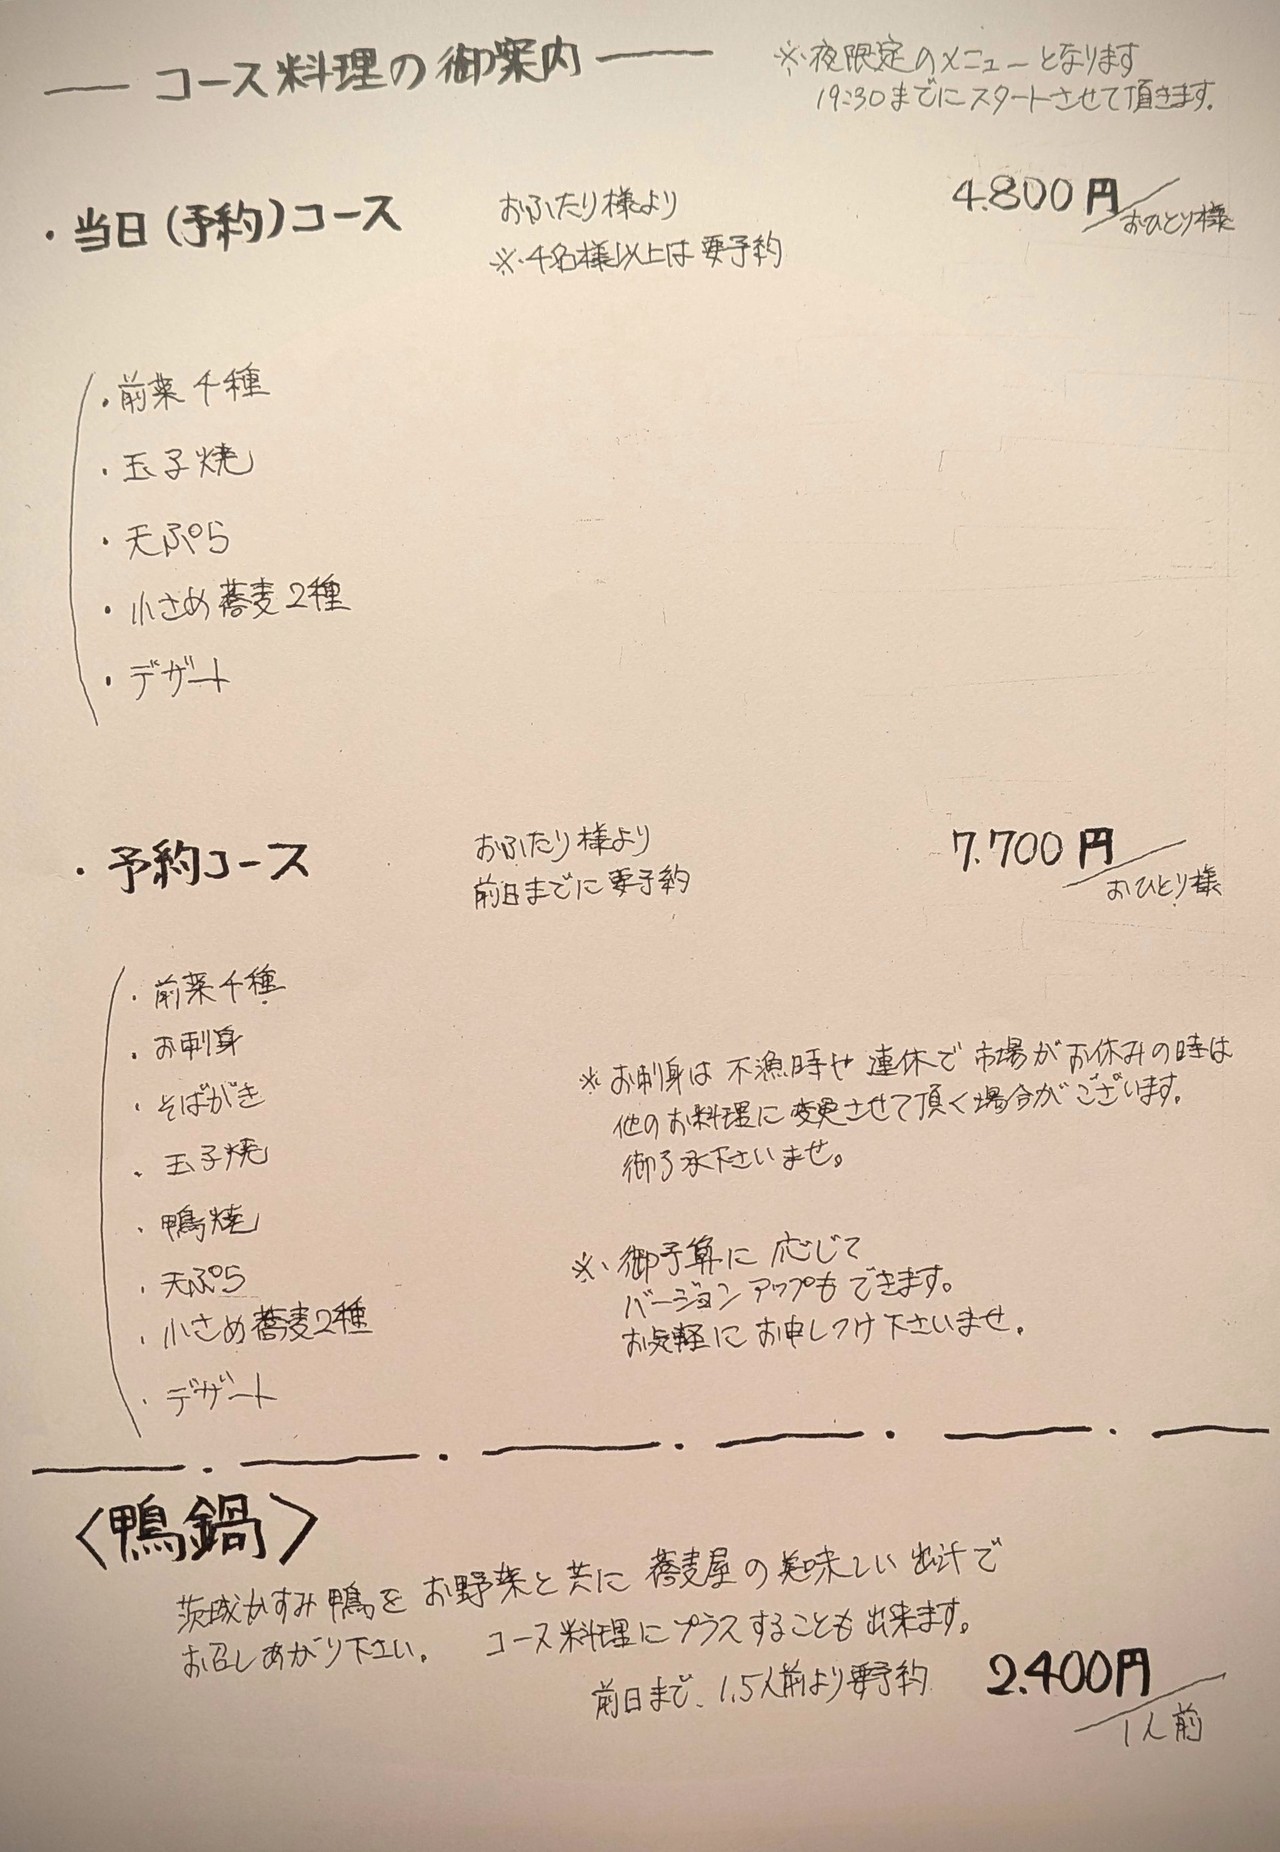 コース料理の御案内
※夜限定のメニューとなります
19:30までにスタートさせて頂きます.
・当日(予約)コース
おふたり様より
※4名様以上は要予約
4.800円/おひとり様
・前菜4種
・玉子焼
・天ぷら
・小さめ蕎麦2種
・デザート
・予約コース
おふたり様より
前日までに要予約
7.700円/おひとり様
・前菜4種
・お刺身
・そばがき
・玉子焼
・鴨焼
・天ぷら
・小さめ蕎麦2種
・デザート
※お刺身は不漁時や連休で市場がお休みの時は
他のお料理に変更させて頂く場合がございます。
御了承下さいませ。
※御予算に応じて
バージョンアップもできます。
お気軽にお申しつけ下さいませ.
〈鴨鍋〉
茨城かすみ鴨をお野菜と共に蕎麦屋の美味しい出汁で
お召しあがり下さい。 コース料理にプラスすることも出来ます。
前日まで、1.5人前より要予約
2.400円/1人前